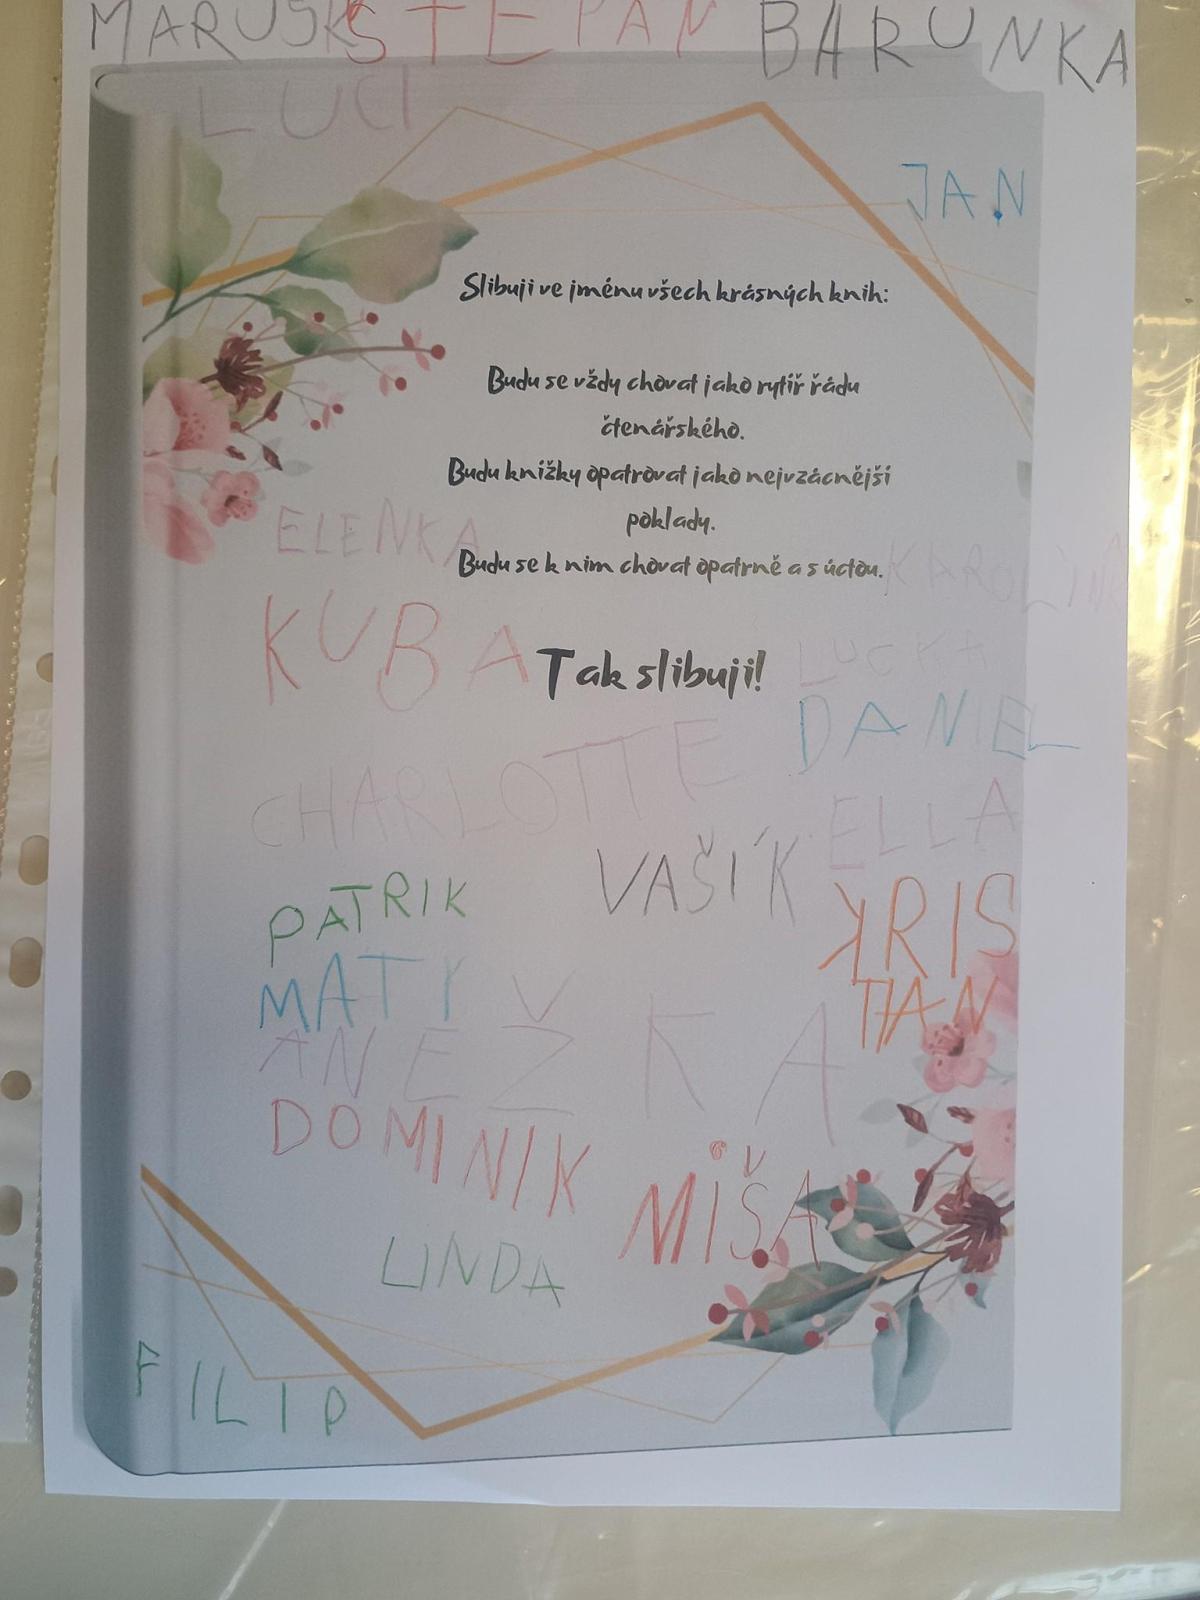 MARUSK ŠTEPAN BARUNKA
LUCI
JAN
Slibuji ve jménu všech krásných knih:
Budu se vždy chovat jako rytíř řádu
čtenářského.
Budu knížky opatrovat jako nejvzácnější
poklady.
Budu se k nim chovat opatrně a s úctou.
ELENKA
KAROLINA
KUBA
Tak slibuji!
LUCKA
DANIEL
CHARLOTTE
ELLA
VAŠÍK
PATRIK
KRIS
TIAN
MATY
ANEŽKA
DOMINIK
MIŠA
LINDA
FILIP